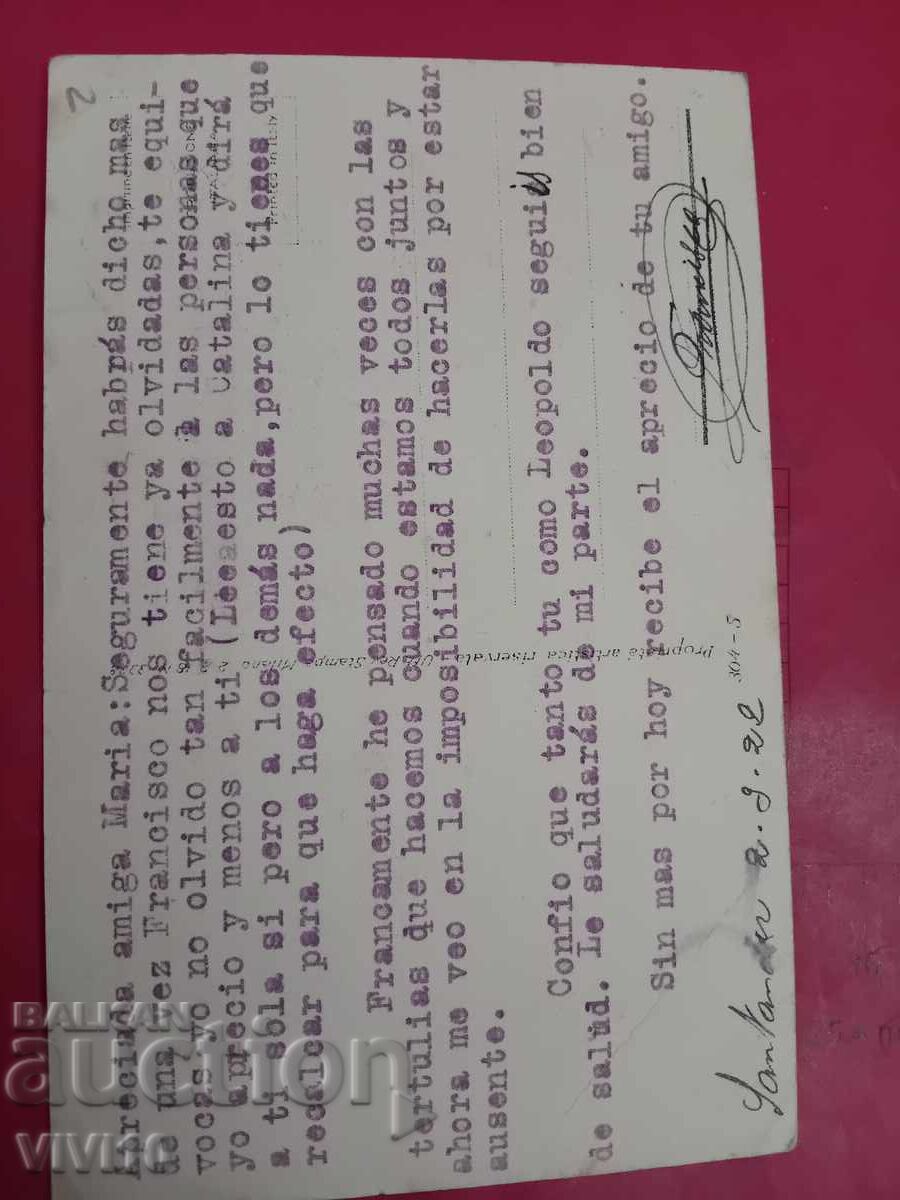 2
Apreciada amiga Maria:Seguramente habrás dicho mas
de una vez Francisco nos tiene ya olvidadas,te equi-
vocas,yo no olvido tan facilmente à las personas que
yo aprecio y menos a ti (Leeaesto a Catalina y dirá
a ti sola si pero a los demás nada,pero lo tienes que
recalcar para que haga efecto)
Francamente he pensado muchas veces con las
tertulias que hacemos cuando estamos todos juntos y
ahora me veo en la imposibilidad de hacerlas por estar
ausente.
Confio que tanto tu como Leopoldo seguiis bien
de salud. Le saludarás de mi parte.
Sin mas por hoy recibe el aprecio de tu amigo.
Santander 2.9.22
304-3
Proprietà artistica riservata Stamp. Milano
Printed in Italy
BALKAN
auction
VIV160